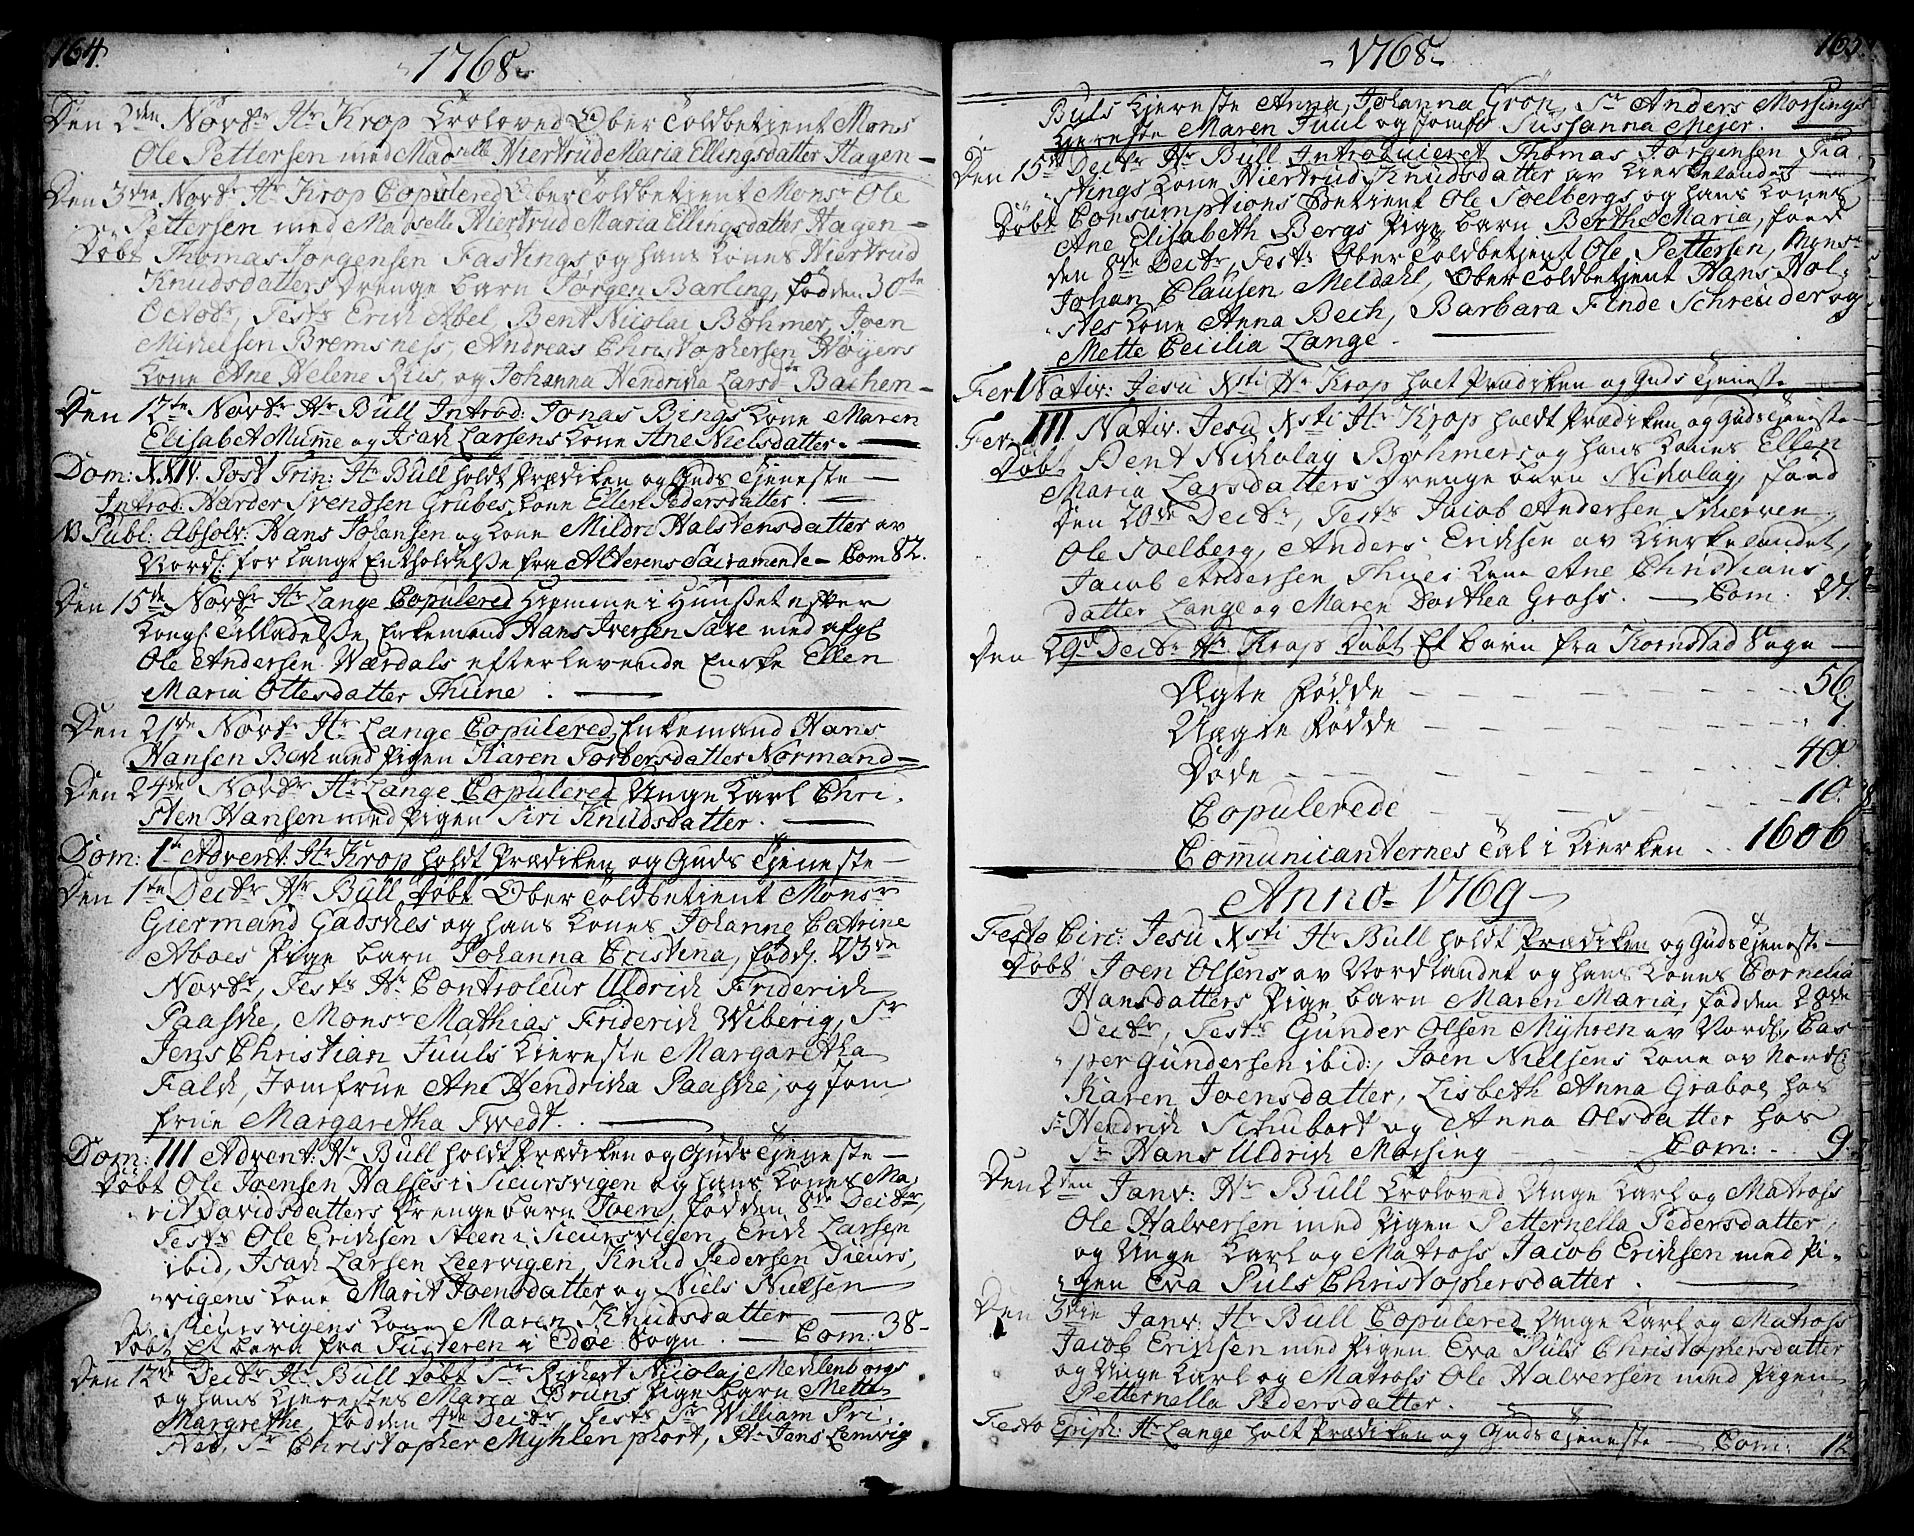 164.
1768
Den 2den Novbr Hr Krop Troloved Ober Toldbetient Mons
Ole Pettersen med Madselle Hiertrud Maria Ellingsdatter Hagen
Den 3die Novbr Hr Krop Copulered Ober Toldbetient Monsr Ole
Pettersen med Madselle Hiertrud Maria Ellingsdatter Hagen
Döbt Thomas Jorgensen Fastings og hans Kones Hiertrud
Knudsdatters Drenge barn Jørgen Barling, fød den 30te
Octobr, Tests Erich Abel, Bent Nicolai Bøhmer, Joen
Michelsen Bremsness, Andreas Christophersen Høyers
Kone Ane Helene Riis, og Johanna Hendricha Larsdtr Bachen
Den 12te Novbr Hr Bull Introd: Jonas Bings Kone Maren
Elisabet Mumme og Isach Larsens Kone Ane Nielsdatter.
Dom: XXIV. Post Trin: Hr Bull holdt Prædiken og Guds Tjeneste
Introd: Harder Svendsen Grubes Kone Ellen Pedersdatter.
NB Publ: Absolv: Hans Johansen og Kone Mildri Halstensdatter av
Nordl. for langt Entholdelsse fra Alterens Sacramente Com 82.
Den 15de Novbr Hr Lange Copulered hiemme i Huuset efter
Kongl: Tilladelsse, Enkemand Hans Iversen Saxe med afgl
Ole Andersen Værdals efterlevende Encke Ellen
Maria Ottesdatter Thune.
Den 21de Novbr Hr Lange Copulered Enkemand Hans
Hansen Bech med Pigen Karen Torbersdatter Normand
Den 24de Novbr Hr Lange Copulered Unge Karl Chri
sten Hansen med Pigen Siri Knudsdatter.
Dom: 1te Advent: Hr Krop holdt Prædiken og Guds Tjeneste
Den 1te Decbr Hr Bull Döbt Ober Toldbetient Monsr
Giermand Gadskes og hans Kones Johanne Catrine
Aboes Pige barn Johanna Cristina, fødd. 23de
Novbr, Tests Hr Controleur Uldrich Friderich
Paaske, Monsr Mathias Friderich Wiberig, Sr
Jens Christian Juuls Kiereste Margaretha
Falch, Jomfrue Ane Hendricha Paaske, og Jom
frue Margaretha Twedt.
Dom: III Advent: Hr Bull holdt Prædiken og Guds Tjeneste
Döbt Ole Joensen Halses i Sieursvigen og hans Kones Ma,
rit Davidsdatters Drenge barn Joen, fød den 8de Decbr,
Tests Ole Erichsen Steen i Sieursvigen, Erich Larsen
ibid, Isach Larsen Leervigen, Knud Pedersen Sieurs,
vigens Kone Marit Joensdatter og Niels Nielsen
Sieursvigens Kone Maren Knudsdatter
Döbt Et barn fra Tusteren i Edöe Sogn. Com: 38
Den 12te Decbr Hr Bull Döbt Sr Richert Nicolai Mechlenborgs
og hans Kierestes Maria Bruns Pige barn Mette
Margrethe, fød den 4de Decbr, Tests Sr William Pri,
Ned, Sr Christopher Myhlenphort, Sr Jans Lemvig
165.
1768
Buls Kiereste Anna Johanna Grön, Sr Anders Morsings
Kiereste Maren Juul og Jomfr Sussanna Mejer.
Den 15de Decbr Hr Bull Introduceret Thomas Jorgensen Fa
stings Kone Hiertrud Knudsdatter av Kierkelandet
Döbt Consumptions Betient Ole Soelbergs og hans Kones
Ane Elisabeth Bergs Pige barn Berthe Maria, fød
den 8de Decbr, Tests Ober Toldbetient Ole Pettersen, Monsr
Johan Clausen Meldahl, Ober Toldbetient Hans Hol,
stes Kone Anna Bech, Barbara Finde Schreuder og
Mette Cecilia Lange.
Fer I Nativ: Jesu Xsti Hr Krop holt Prædiken og Guds Tjeneste
Fer III. Nativ. Jesu Xsti Hr Krop holdt Prædiken og Guds Tjeneste
Döbt Bent Nikolay Bøhmers og hans Kones Ellen
Maria Larsdatters Drenge barn Nikolay, fød
den 20de Decbr, Tests Jacob Andersen Skierven,
Ole Soelberg, Anders Erichsen av Kierkelandet,
Jacob Andersen Thues Kone Ane Christians
datter Lange og Maren Dorthea Gross. Com. 27.
Den 29de Decbr Hr Krop Döbt Et barn fra Kornstad Sogn
Ægte Fødde 56.
Uægte Fødde 1.
Døde 40.
Copulerede 10.
Communicanternes Tal i Kierken 1606
Anno 1769
Festo Circ: Jesu Xsti Hr Bull holdt Prædiken og Guds Tjeneste
Döbt Joen Olsens av Nordlandet og hans Kones Cornelia
Hansdatters Pige barn Maren Maria, fød den 28de
Decbr, Tests Gunder Olsen Myhren av Nordl, Cas
per Gundersen ibid:, Joen Nielsens Kone av Nordl
Karen Joensdatter, Lisbeth Anna Graboe hos
Sr Hendrich Schubart og Anna Olsdatter hos
Sr Hans Uldrich Morsing Com: 9.
Den 2den Janv: Hr Bull Troloved Unge Karl og Matross
Ole Halversen med Pigen Petternella Pedersdatter,
og Unge Karl og Matross Jacob Erichsen med Pi,
gen Eva Puls Christophersdatter.
Den 3die Janv: Hr Bull Copulered Unge Karl og Matross
Jacob Erichsen med Pigen Eva Puls Christophersdatter
og Unge Karl og Matross Ole Halversen med Pigen
Petternella Pedersdatter.
Festo Epiph: Hr Lange holt Prædiken og Guds Tjeneste Com: 12.